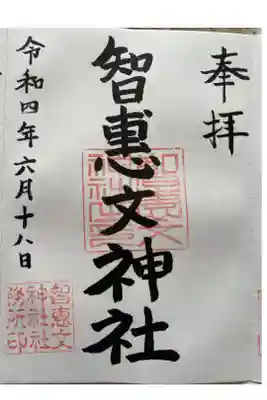 奉拝
智恵文神社
令和四年六月十八日
智恵文
神社社
務所印